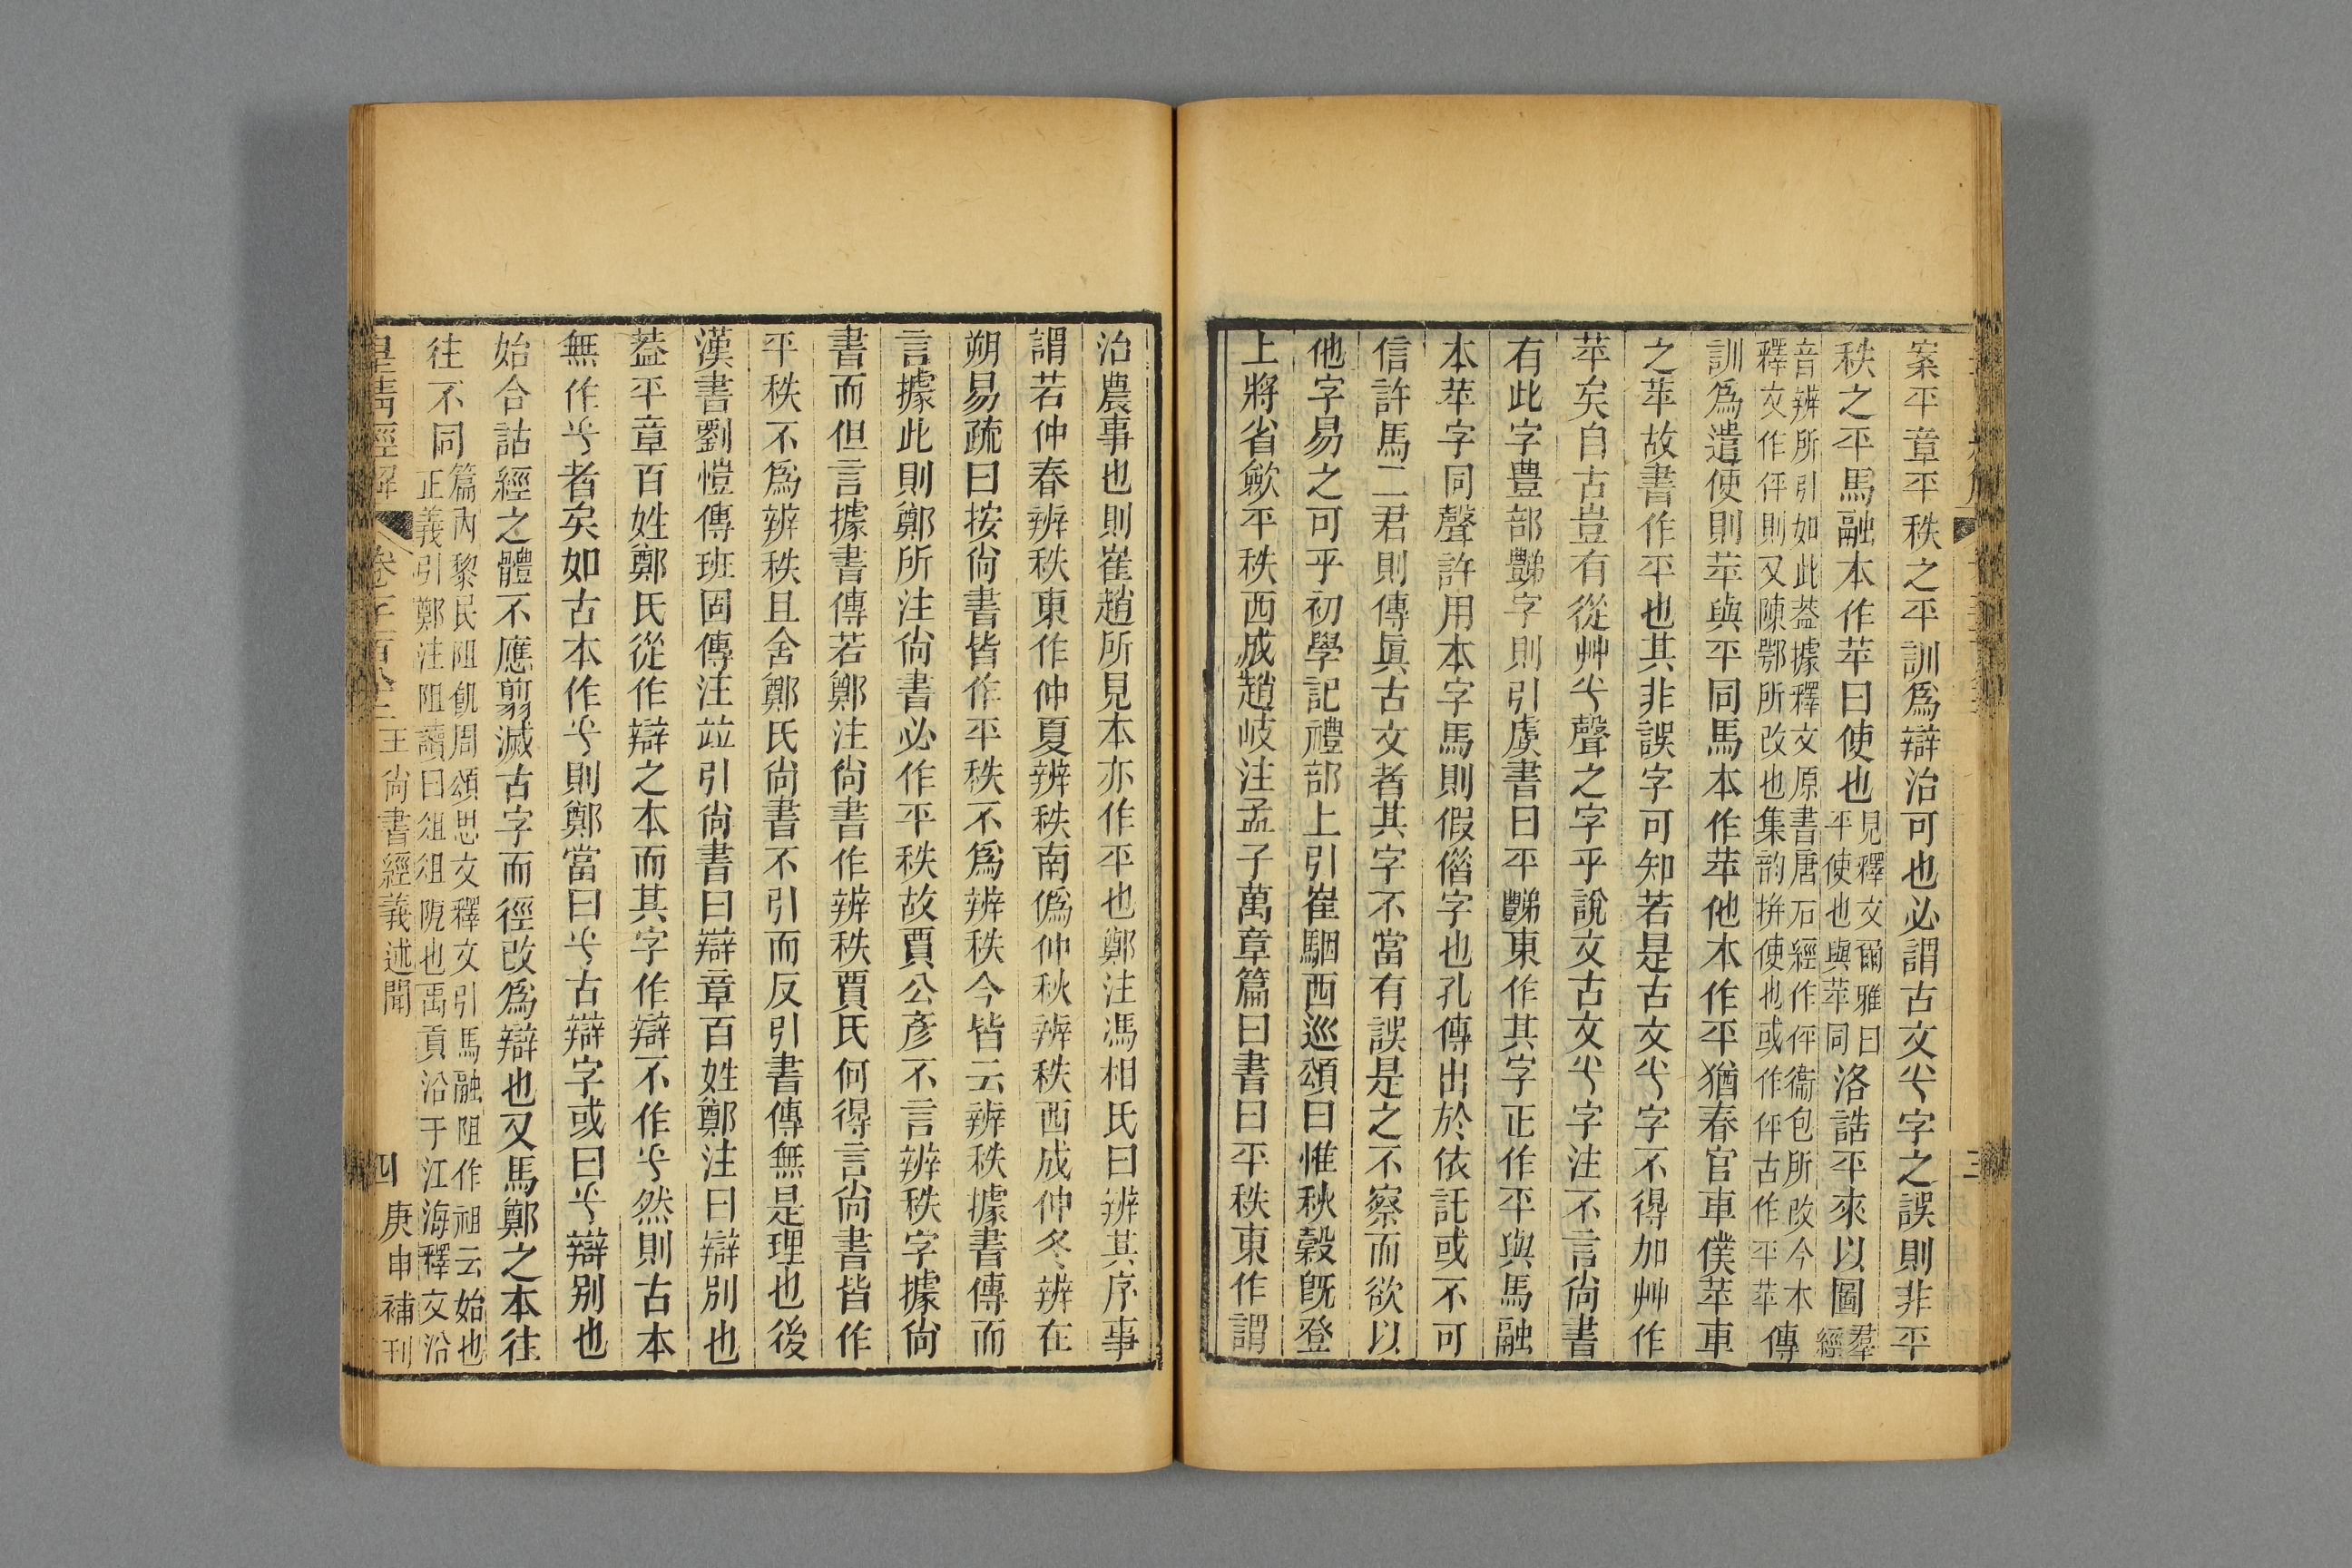 案平章平秩之平訓爲辯治可也必謂古文𠔁字之誤則非平
秩之平馬融本作苹曰使也見釋文爾雅曰平使也與苹同洛誥平來以圖羣經
音辨所引如此葢據釋文原書唐石經作伻衞包所改今本釋文作伻則又陳鄂所改也集韵拼使也或作伻古作平苹傳
訓爲遣使則苹與平同馬本作苹他本作平猶春官車僕苹車
之苹故書作平也其非誤字可知若是古文𠔁字不得加艸作
苹矣自古豈有從艸𠔁聲之字乎說文古文𠔁字注不言尙書
有此字豐部豑字則引虞書曰平豑東作其字正作平與馬融
本苹字同聲許用本字馬則假借字也孔傳出於依託或不可
信許馬二君則傳眞古文者其字不當有誤是之不察而欲以
他字易之可乎初學記禮部上引崔駰西巡頌曰惟秋穀旣登
上將省斂平秩西成趙岐注孟子萬章篇曰書曰平秩東作謂
治農事也則崔趙所見本亦作平也鄭注馮相氏曰辨其序事
謂若仲春辨秩東作仲夏辨秩南僞仲秋辨秩西成仲冬辨在
朔易疏曰按尙書皆作平秩不爲辨秩今皆云辨秩據書傳而
言據此則鄭所注尙書必作平秩故賈公彥不言辨秩字據尙
書而但言據書傳若鄭注尙書作辨秩賈氏何得言尙書皆作
平秩不爲辨秩且舍鄭氏尙書不引而反引書傳無是理也後
漢書劉愷傳班固傳注竝引尙書曰辯章百姓鄭注曰辯別也
葢平章百姓鄭氏從作辯之本而其字作辯不作𠔁然則古本
無作𠔁者矣如古本作𠔁則鄭當曰𠔁古辯字或曰𠔁辯別也
始合詁經之體不應翦滅古字而徑改爲辯也又馬鄭之本往
往不同篇內黎民阻飢周頌思文釋文引馬融阻作祖云始也正義引鄭注阻讀曰俎俎阨也禹貢沿于江海釋文沿
皇淸經解 卷一千一百八十三 王尙書經義述聞 四 庚申補刊